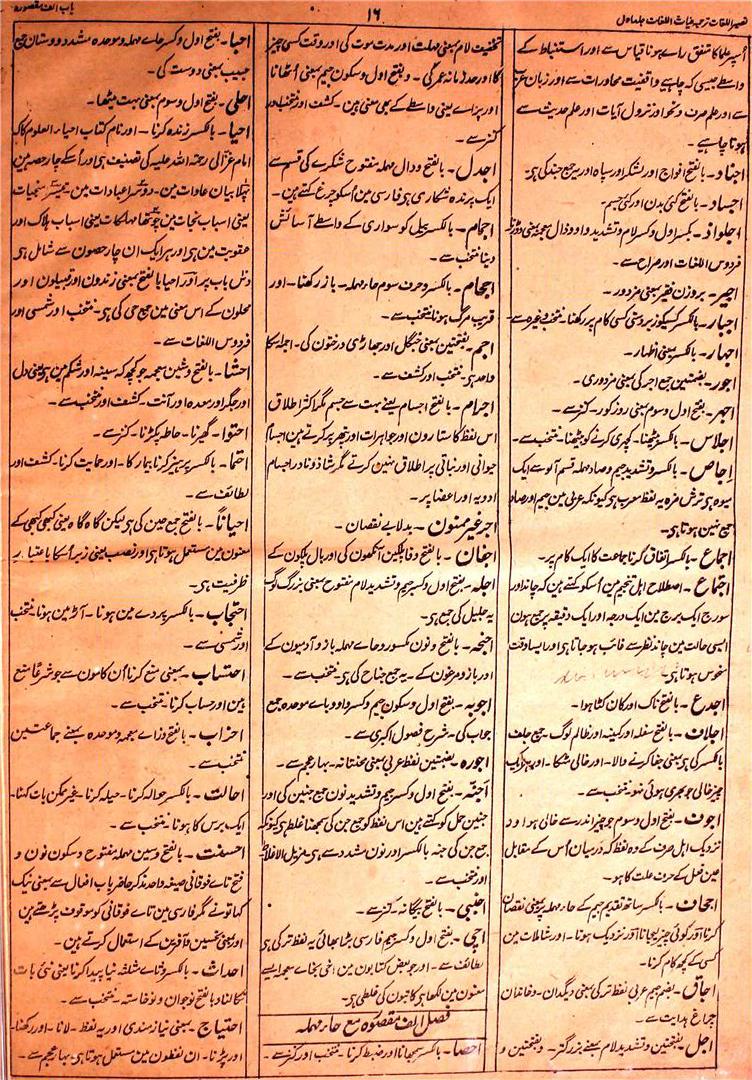 باب الف مقصورہ
۱۶
نصیر اللغات ترجمہ غیاث اللغات جلد اول
اُسپر علما کا متفق رائے ہونا قیاس سے اور استنباط کے
واسطے جیسی کہ چاہیے واقفیت محاورات سے اور زبان عرب
سے اور علم صرف و نحو اور نزول آیات اور علم حدیث سے
ہونا چاہیے۔
اجناد۔ بالفتح افواج اور لشکر اور سپاہ اور یہ جمع جند کی ہی۔
اجساد۔ بالفتح کئی بدن اور کئی جسم۔
اجلواذ۔ بکسر اول وکسر لام و تشدید واو و ذال معجمہ بمعنی دوڑنا
فردوس اللغات اور صراح سے۔
اجیر۔ بروزن فقیر بمعنی مزدور۔
اجبار۔ بالکسر کسیکو زبردستی کسی کام پر رکھنا۔ منتخب وغیرہ سے۔
اجہار۔ بالکسر بمعنی اظہار۔
اجور۔ بضمتین جمع اجر کی بمعنی مزدوری۔
اجہر۔ بفتح اول و سوم بمعنی روز کور۔ کنز سے۔
اجلاس۔ بالکسر بیٹھنا۔ کچہری کرنے کو بیٹھنا۔ منتخب سے۔
اجاص۔ بالکسر و تشدید جیم و صاد مہملہ قسم آلو سے ایک
میوہ ہی ترش مزہ یہ لفظ معرب ہی کیونکہ عربی مین جیم اور صاد
جمع نہین ہوتا ہی۔
اجماع۔ بالکسر اتفاق کرنا جماعت کا ایک کام پر۔
اجتماع۔ اصطلاح اہل تنجیم مین اُسکو کہتے ہین کہ چاند اور
سورج ایک برج مین ایک درجہ اور ایک دقیقہ پر جمع ہون
ایسی حالت مین چاند نظر سے غائب ہو جاتا ہی اور ایسا وقت
منحوس ہوتا ہی۔
اجدع۔ بالفتح ناک اور کان کٹا ہوا۔
اجلاف۔ بالفتح سفلہ اور کمینہ اور ظالم لوگ۔ جمع جلف
بالکسر کی ہی بمعنی جفا کرنے والا۔ اور خالی مٹکا۔ اور ہر ایک
چیز خالی جو بھری ہوئی نہو۔ منتخب سے۔
اجوف۔ بفتح اول و سوم جو چیز اندر سے خالی ہو اور
نزدیک اہل صرف کے وہ لفظ کہ درمیان اُس کے مقابل
عین فعل کے حرف علت کا ہو۔
اجحاف۔ بالکسر ساتھ تقدیم جیم کے حاء مہملہ پر بمعنی نقصان
کرنا اور کوئی چیز لیجانا اور نزدیک ہونا۔ اور شاملات مین
کسی کے کچھ کام کرنا۔
اجاق۔ بضم جیم عربی لفظ ترکی بمعنی دیگدان۔ وخاندان
چراغ ہدایت سے۔
اجل۔ بفتحتین و تشدید لام بمعنی بزرگتر۔ و بفتحتین و
تخفیف لام بمعنی مہلت اور مدت موت کی اور وقت کسی چیز
کا اور حد زمانہ عمر کی۔ و بفتح اول و سکون جیم بمعنی اُٹھانا
اور برائے یعنی واسطے کے بھی معنی ہین۔ کشف اور منتخب اور
کنز سے۔
اجدل۔ بالفتح و دال مہملہ مفتوح شکرے کی قسم سے
ایک پرندہ شکاری ہی فارسی مین اُسکو چرغ کہتے ہین۔
اجمام۔ بالکسر بیل کو سواری کے واسطے آسائش
دینا منتخب سے۔
احجام۔ بالکسر و حرف سوم حاء مہملہ۔ باز رکھنا۔ اور
قریب مرگ ہونا منتخب سے۔
اجم۔ بفتحتین بمعنی جنگل اور جھاڑی درختون کی۔ اجمہ اسکا
واحد ہی۔ منتخب اور کشف سے۔
اجرام۔ بالفتح اجسام یعنے بہت سے جسم مگر اکثر اطلاق
اس لفظ کا ستارون اور جواہرات اور پتھر پر کرتے ہین اجسام
حیوانی اور نباتی پر اطلاق نہین کرتے مگر شاذ و نادر اجسام
ادویہ اور اعضا پر۔
اجر غیر ممنون۔ بدلا بے نقصان۔
اجفان۔ بالفتح و فا پلکین آنکھون کی اور بال پلکون کے
اجلہ۔ بفتح اول وکسر جیم و تشدید لام مفتوح بمعنی بزرگ لوگ
یہ جلیل کی جمع ہی۔
اجنحہ۔ بالفتح و نون مکسور و حاے مہملہ بازو آدمیون کے
اور بازو مرغون کے۔ یہ جمع جناح کی ہی۔ منتخب سے۔
اجوبہ۔ بفتح اول و سکون جیم وکسر واو و باے موحدہ جمع
جواب کی۔ شرح فصول اکبری سے۔
اجورہ۔ بضمتین لفظ عربی بمعنی محنتانہ۔ بہار عجم سے۔
اجنّہ۔ بفتح اول وکسر جیم و تشدید نون جمع جنین کی اور
جنین حمل کو کہتے ہین اس لفظ کو جمع جن کی سمجھنا غلط ہی کیونکہ
جمع جن کی جنہ بالکسر اور نون مشدد سے ہی۔ مزیل الاغلاط
اور منتخب سے۔
اجنبی۔ بالفتح بیگانہ۔ کنز سے۔
اچی۔ بفتح اول وکسر جیم فارسی بڑا بھائی یہ لفظ ترکی ہی
لطائف سے۔ اور جو بعض کتابون مین اخی بخاے معجمہ ایسے
معنون مین لکھا ہی کاتبون کی غلطی ہی۔
فصل الف مقصورہ مع حاء مہملہ
احصا۔ بالکسر سمجھانا اور ضبط کرنا۔ منتخب اور کنز سے۔
احبا۔ بفتح اول وکسر حاے مہملہ و موحدہ مشدد دوستان جمع
حبیب بمعنی دوست کی۔
احلی۔ بفتح اول و سوم بمعنی بہت میٹھا۔
احیا۔ بالکسر زندہ کرنا۔ اور نام کتاب احیاء العلوم کا کہ
امام غزالی رحمۃ اللہ علیہ کی تصنیف ہی اور اُسکے چار حصے ہین
پہلا بیان عادات مین۔ دوسرا عبادات مین۔ تیسرا منجیات
یعنی اسباب نجات مین چوتھا مہلکات یعنی اسباب ہلاک اور
عقوبت مین ہی اور ہر ایک ان چار حصون سے شامل ہی
دس باب پر اور احیا بالفتح بمعنی زندون اور قبیلون اور
محلون کے اس معنی مین جمع حی کی ہی۔ منتخب اور شمسی اور
فردوس اللغات سے۔
احشا۔ بالفتح و شین معجمہ جو کچھ کہ سینہ اور شکم مین ہو یعنی دل
اور جگر اور معدہ اور آنت۔ کشف اور منتخب سے۔
احتوا۔ گھیرنا۔ حاطہ پکڑنا۔ کنز سے۔
احتما۔ بالکسر پرہیز کرنا بیمار کا۔ اور حمایت کرنا۔ کشف اور
لطائف سے۔
احیاناً۔ بالفتح جمع حین کی ہی لیکن گاہ گاہ یعنی کبھی کبھی کے
معنون مین مستعمل ہوتا ہی اور نصب یعنی زبر اُسکا باعتبار
ظرفیت ہی۔
احتجاب۔ بالکسر پردے مین ہونا۔ آڑ مین ہونا۔ منتخب
اور شمسی سے۔
احتساب۔ بمعنی منع کرنا اُن کامون سے جو شرعاً منع
ہین اور حساب کرنا۔ منتخب سے۔
احزاب۔ بالفتح و زاے معجمہ و موحدہ بمعنے جماعتین
منتخب سے۔
احالت۔ بالکسر حوالہ کرنا۔ حیلہ کرنا۔ غیر ممکن بات کہنا۔
ایک برس کا ہونا۔ منتخب سے۔
احسنت۔ بالفتح و سین مہملہ مفتوح و سکون نون و
فتح تاے فوقانی صیغہ واحد مذکر حاضر باب افعال سے بمعنی نیک
کہا تونے مگر فارسی مین تاے فوقانی کو موقوف پڑھتے ہین
اور بمعنی تحسین و آفرین کے استعمال کرتے ہین۔
احداث۔ بالکسر و ثاے مثلثہ نیا پیدا کرنا یعنی نئی بات
نکالنا و بالفتح نوجوان و نوخاستہ۔ منتخب سے۔
احتیاج۔ بمعنی نیازمندی اور یہ لفظ۔ لانا۔ اور رکھنا۔
اور پڑنا۔ ان لفظون مین مستعمل ہوتا ہی۔ بہار عجم سے۔